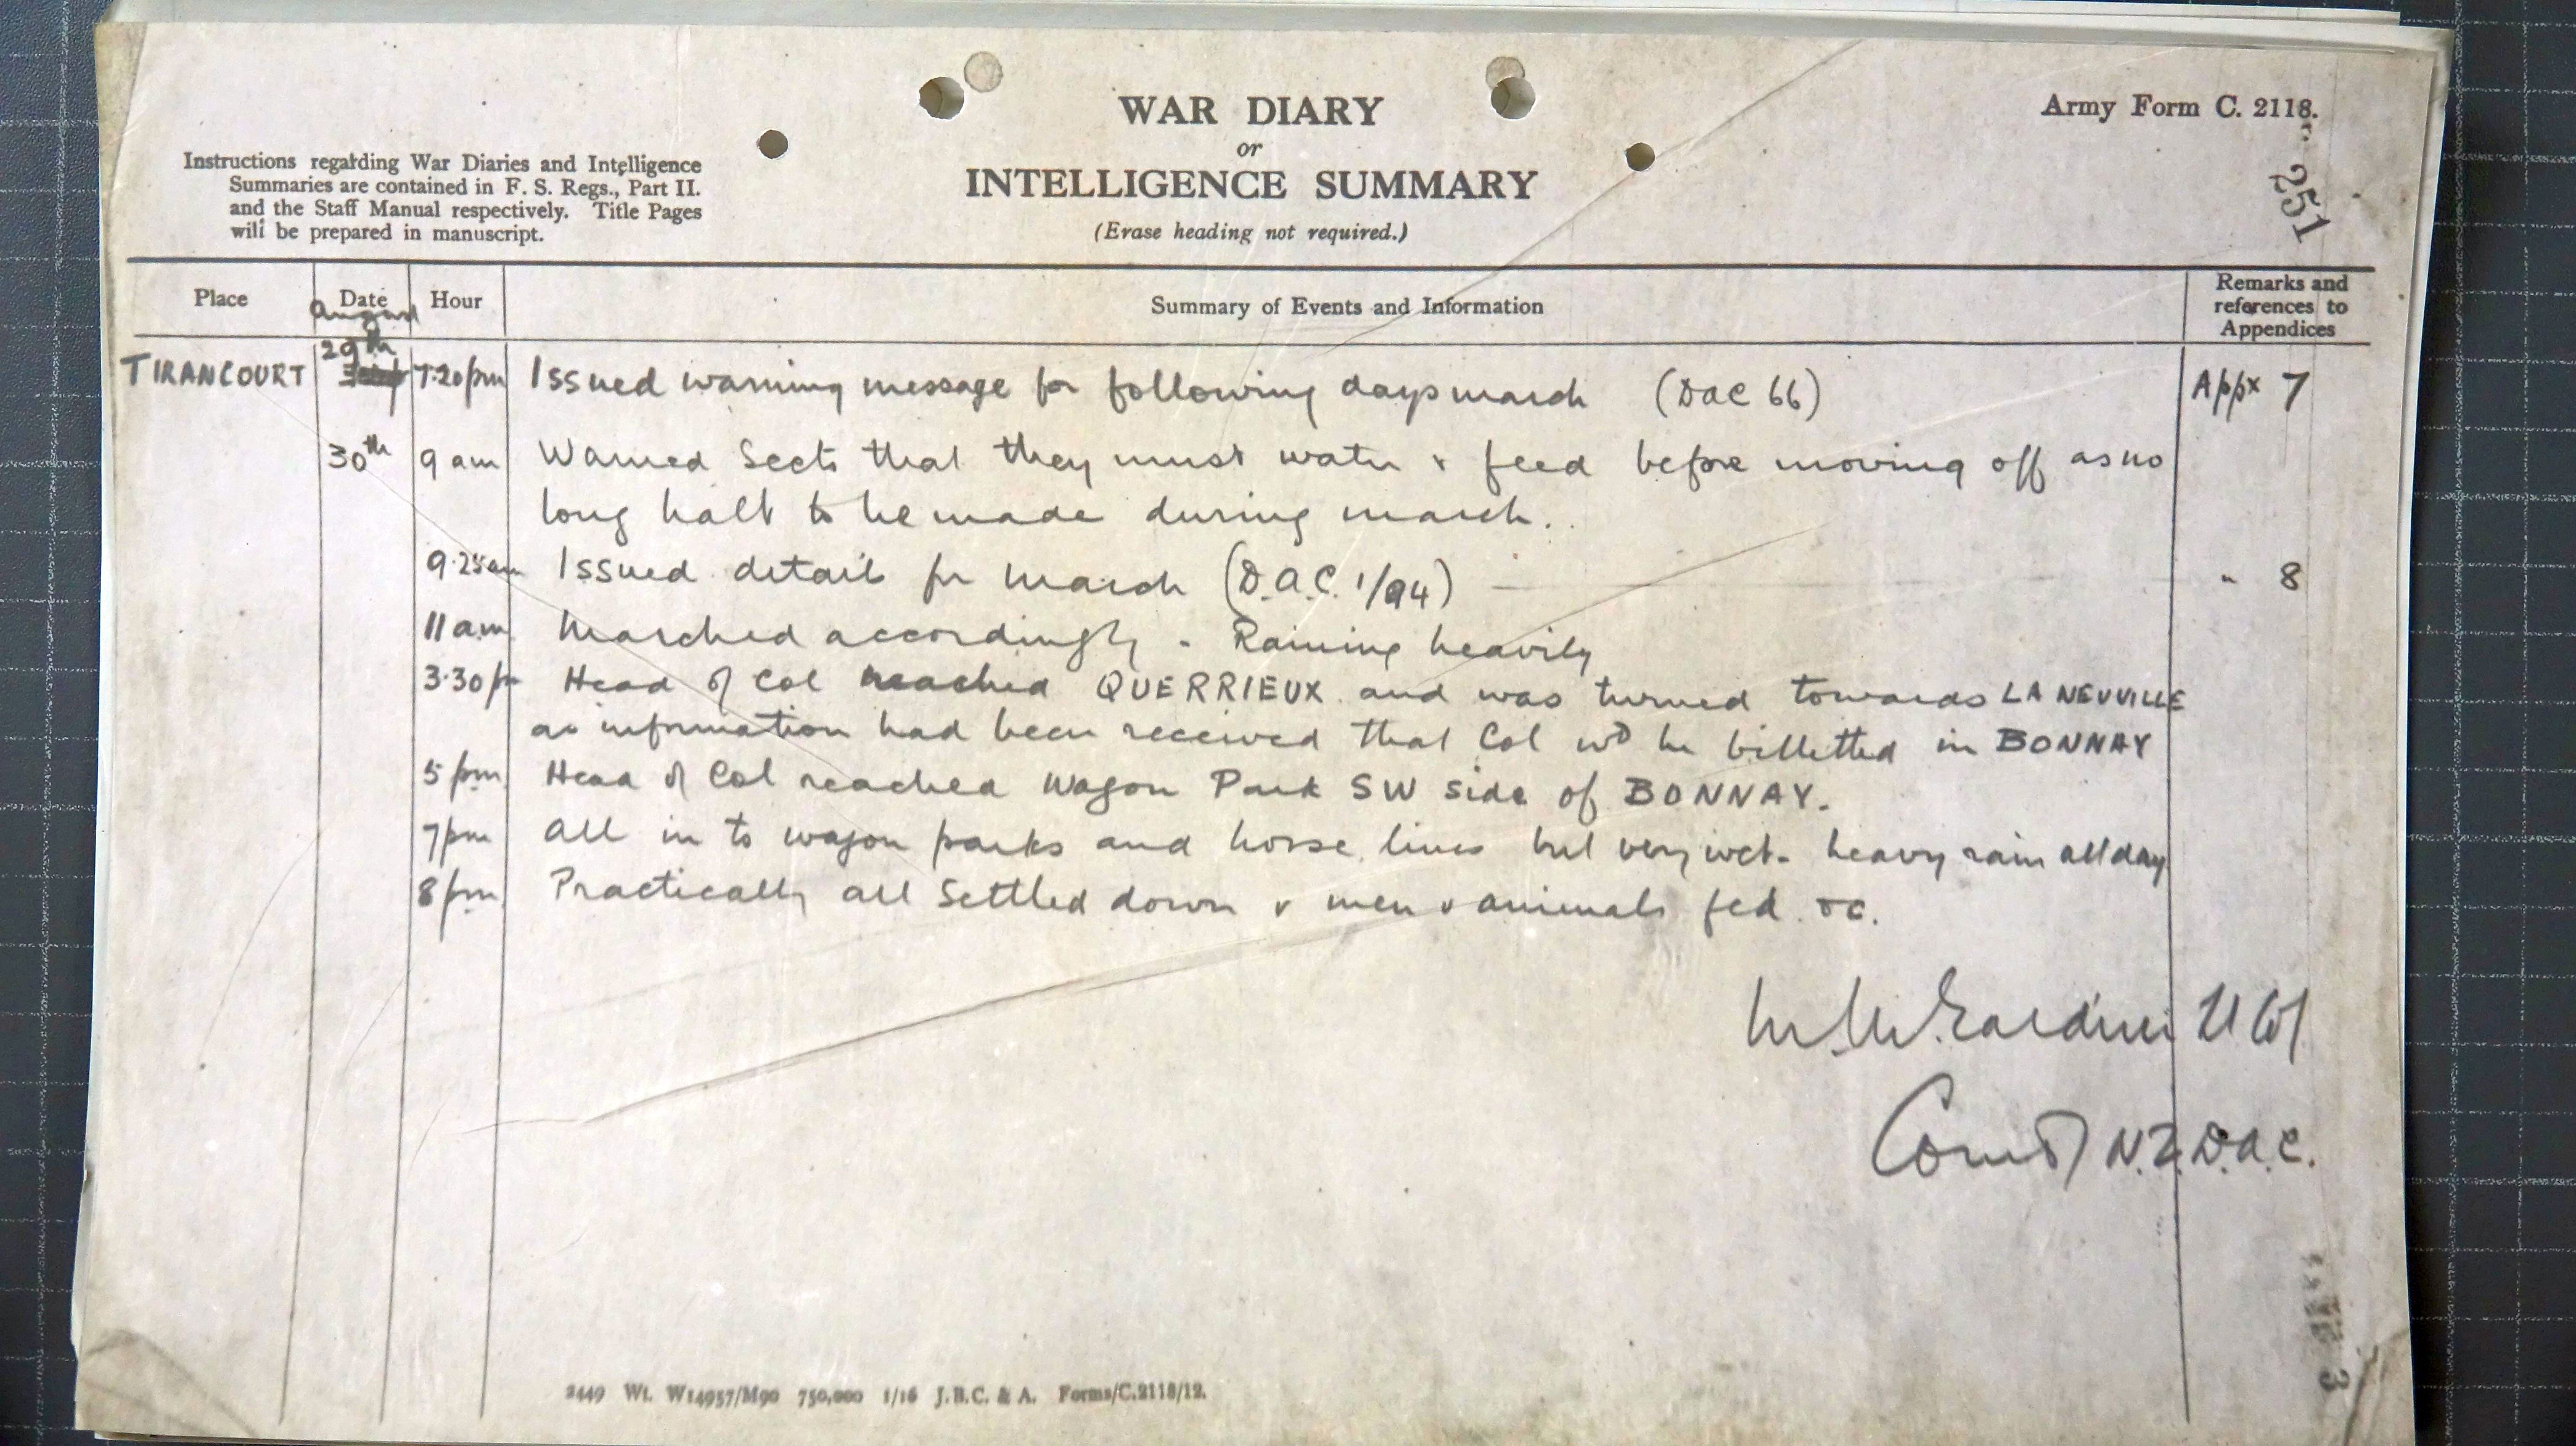 WAR DIARY
or
INTELLIGENCE SUMMARY
(Erase heading not required.)
Army Form C. 2118.
251
Instructions regarding War Diaries and Intelligence
Summaries are contained in F. S. Regs., Part II.
and the Staff Manual respectively. Title Pages
will be prepared in manuscript.
Place Date Hour Summary of Events and Information Remarks and references to Appendices
August
TIRANCOURT 29th 7.20pm Issued warning message for following days march (DAC 66) Appx 7
30th 9 am Warned Sects that they must water & feed before moving off as no
long halt to be made during march.
9.25am Issued details for march (D.A.C. 1/94) " 8
11 am Marched accordingly - Raining heavily
3.30pm Head of Col reached QUERRIEUX and was turned towards LA NEUVILLE
as information had been received that Col wd be billetted in BONNAY
5 pm Head of Col reached Wagon Park SW side of BONNAY.
7pm all in to wagon parks and horse lines but very wet - heavy rain all day
8pm Practically all settled down & men & animals fed &c.
Gardner Lt Col
Comdg N.Z.D.A.C.
2449 Wt. W14957/M90 750,000 1/16 J.B.C. & A. Forms/C.2118/12.